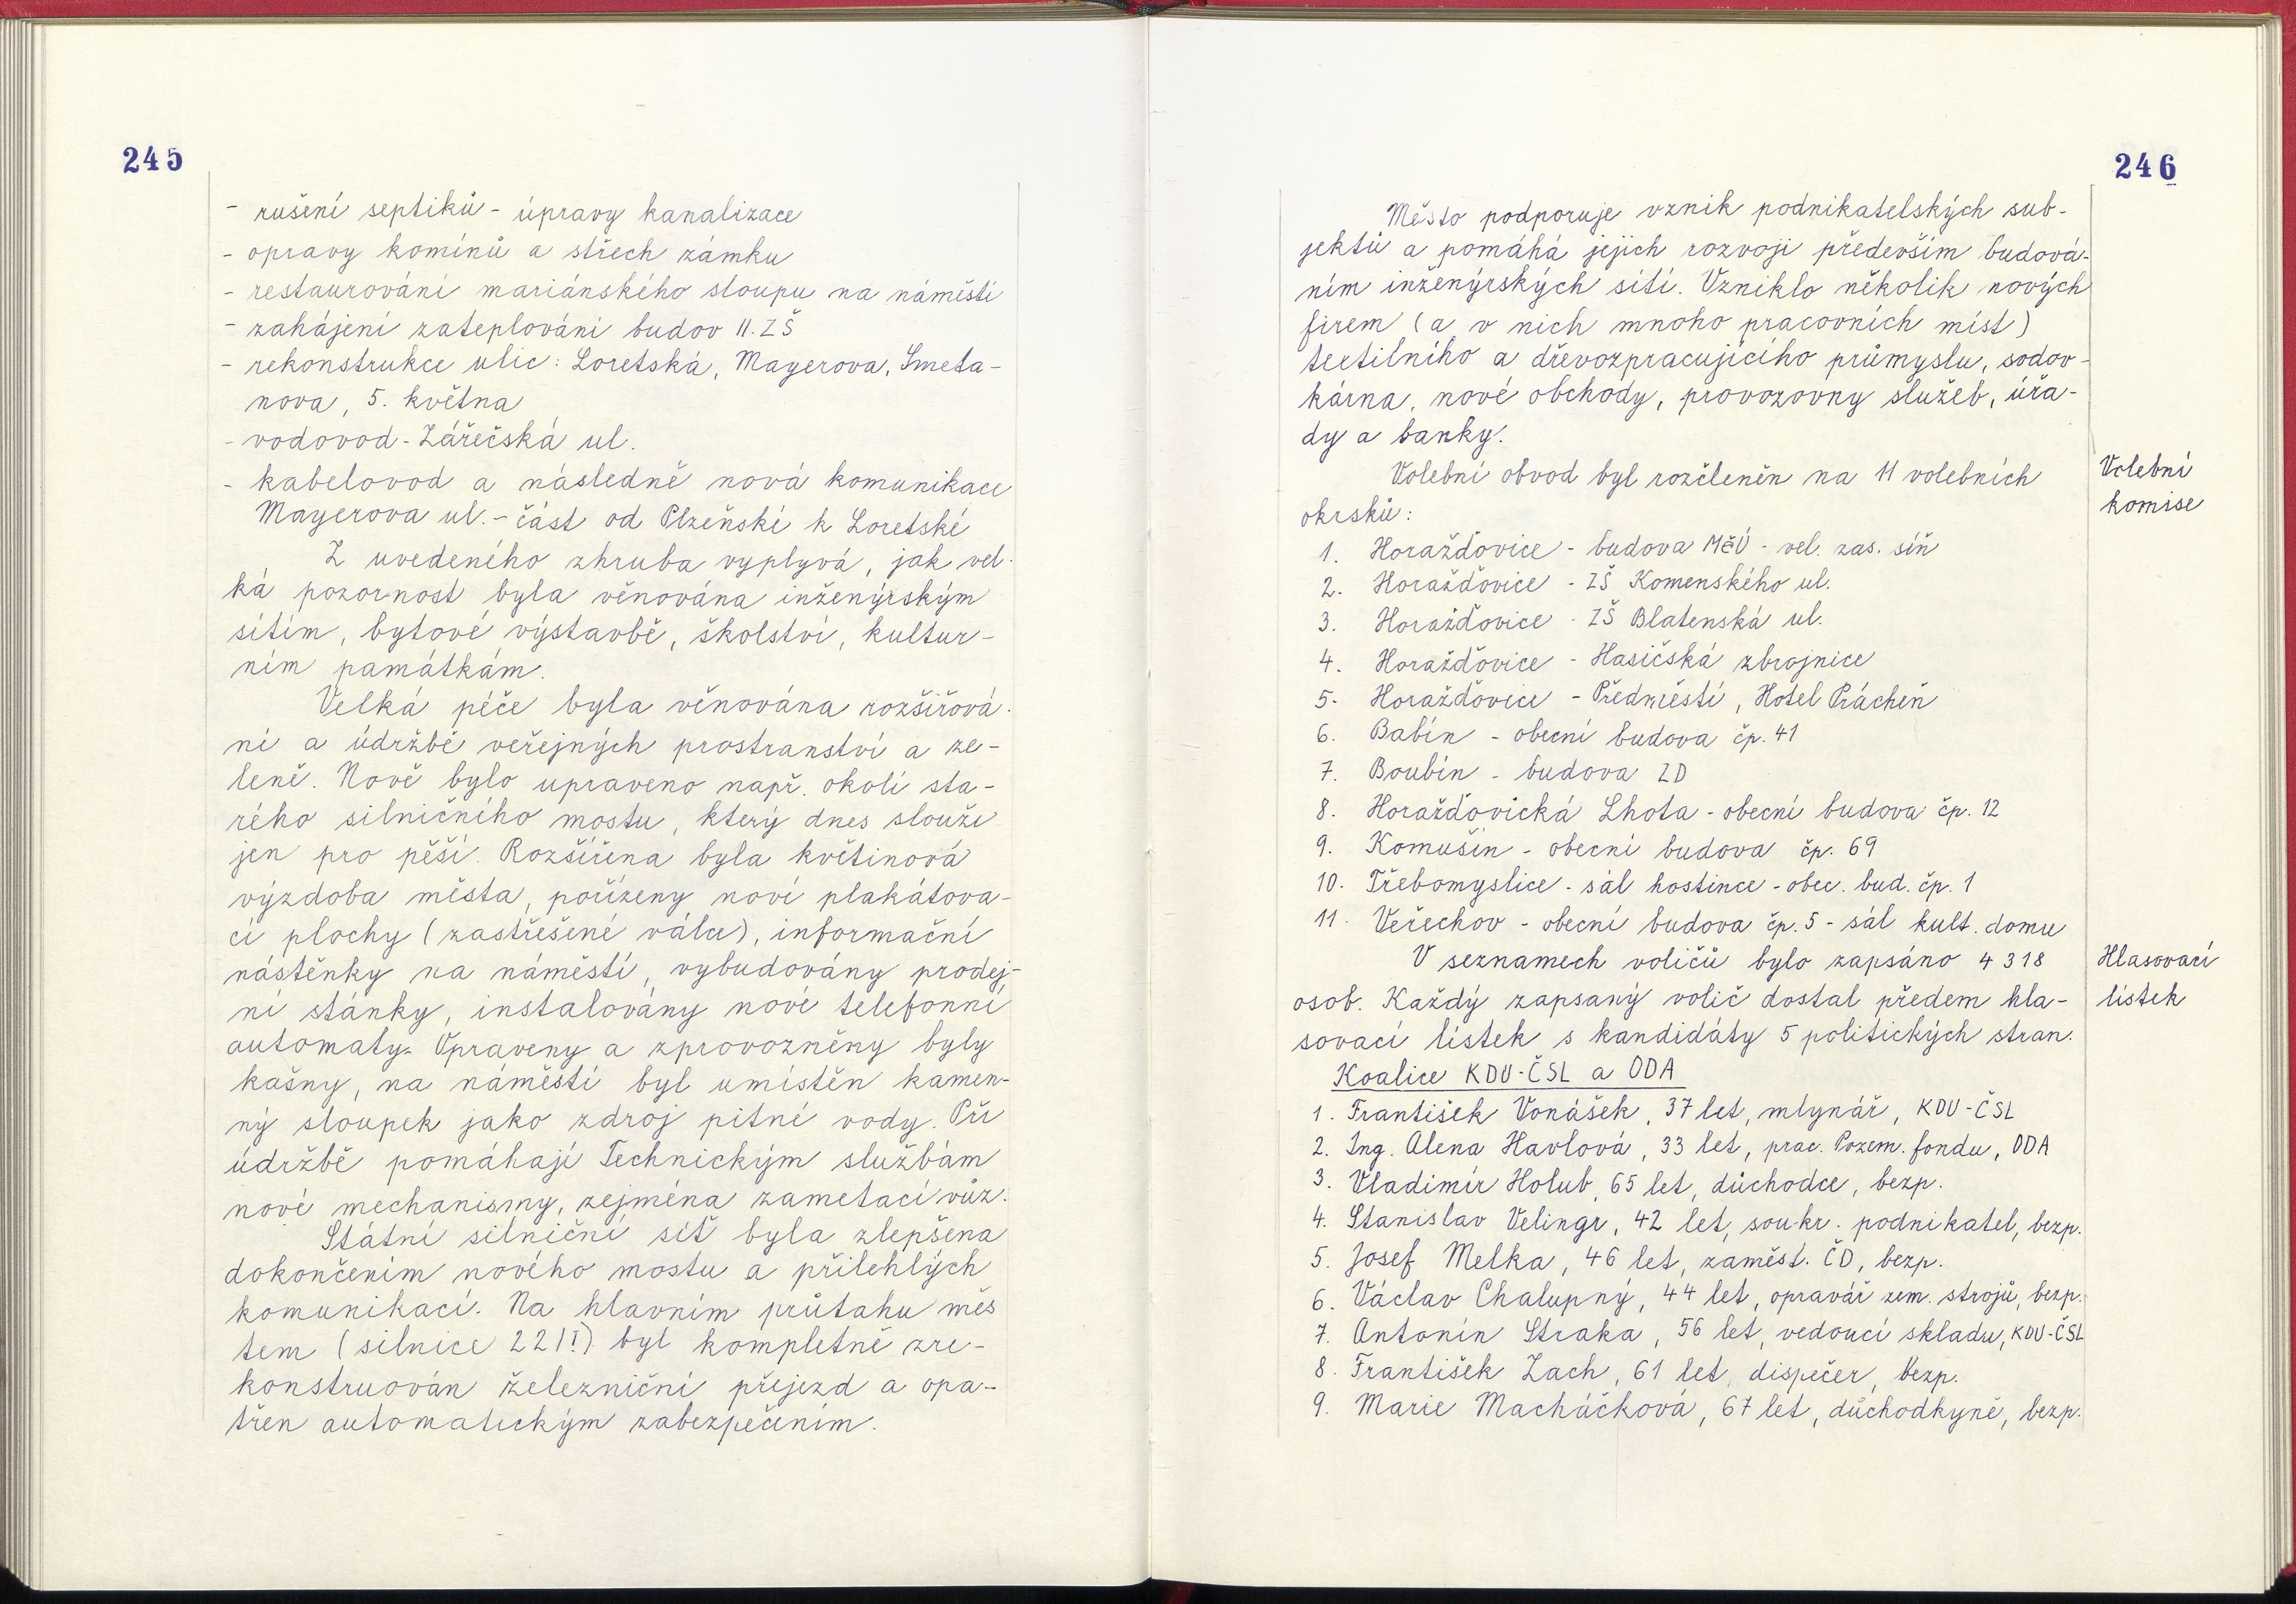 245
- rušení septiků - úpravy kanalizace
- opravy komínů a střech zámku
- restaurování mariánského sloupu na náměstí
- zahájení zateplování budov II. ZŠ
- rekonstrukce ulic: Loretská, Mayerova, Smeta-
nova, 5. května
- vodovod - Zářečská ul.
- kabelovod a následně nová komunikace
Mayerova ul. - část od Plzeňské k Loretské
Z uvedeného zhruba vyplyvá, jak vel-
ká pozornost byla věnována inženýrským
sítím, bytové výstavbě, školství, kultur-
ním památkám.
Velká péče byla věnována rozšiřová-
ní a údržbě veřejných prostranství a ze-
leně. Nově bylo upraveno např. okolí sta-
rého silničního mostu, který dnes slouží
jen pro pěší. Rozšířena byla květinová
výzdoba města, pořízeny nové plakátova-
cí plochy (zastřešené válce), informační
nástěnky na náměstí, vybudovány prodej-
ní stánky, instalovány nové telefonní
automaty. Opraveny a zprovozněny byly
kašny, na náměstí byl umístěn kamen-
ný sloupek jako zdroj pitné vody. Při
údržbě pomáhají Technickým službám
nové mechanismy, zejména zametací vůz.
Státní silniční síť byla zlepšena
dokončením nového mostu a přilehlých
komunikací. Na hlavním průtahu měs
tem (silnice 22/I) byl kompletně zre-
konstruován železniční přejezd a opa-
třen automatickým zabezpečením.
246
Město podporuje vznik podnikatelských sub-
jektů a pomáhá jejich rozvoji především budová-
ním inženýrských sítí. Vzniklo několik nových
firem (a v nich mnoho pracovních míst)
textilního a dřevozpracujícího průmyslu, sodov-
kárna, nové obchody, provozovny služeb, úřa-
dy a banky.
Volební obvod byl rozčleněn na 11 volebních
okrsků:
Volební
komise
1. Horažďovice - budova MěÚ - vel. zas. síň
2. Horažďovice - ZŠ Komenského ul.
3. Horažďovice - ZŠ Blatenská ul.
4. Horažďovice - Hasičská zbrojnice
5. Horažďovice - Předměstí, Hotel Prácheň
6. Babín - obecní budova čp. 41
7. Boubín - budova ZD
8. Horažďovická Lhota - obecní budova čp. 12
9. Komušín - obecní budova čp. 69
10. Třebomyslice - sál hostince - obec. bud. čp. 1
11. Veřechov - obecní budova čp. 5 - sál kult. domu
V seznamech voličů bylo zapsáno 4 318
osob. Každý zapsaný volič dostal předem hla-
sovací lístek s kandidáty 5 politických stran.
Hlasovací
lístek
Koalice KDU-ČSL a ODA
1. František Vonášek, 37 let, mlynář, KDU-ČSL
2. Ing. Alena Havlová, 33 let, prac. Pozem. fondu, ODA
3. Vladimír Holub, 65 let, důchodce, bezp.
4. Stanislav Velingr, 42 let, soukr. podnikatel, bezp.
5. Josef Melka, 46 let, zaměst. ČD, bezp.
6. Václav Chalupný, 44 let, opravář zem. strojů, bezp.
7. Antonín Straka, 56 let, vedoucí skladu, KDU-ČSL
8. František Zach, 61 let, dispečer, bezp.
9. Marie Macháčková, 67 let, důchodkyně, bezp.